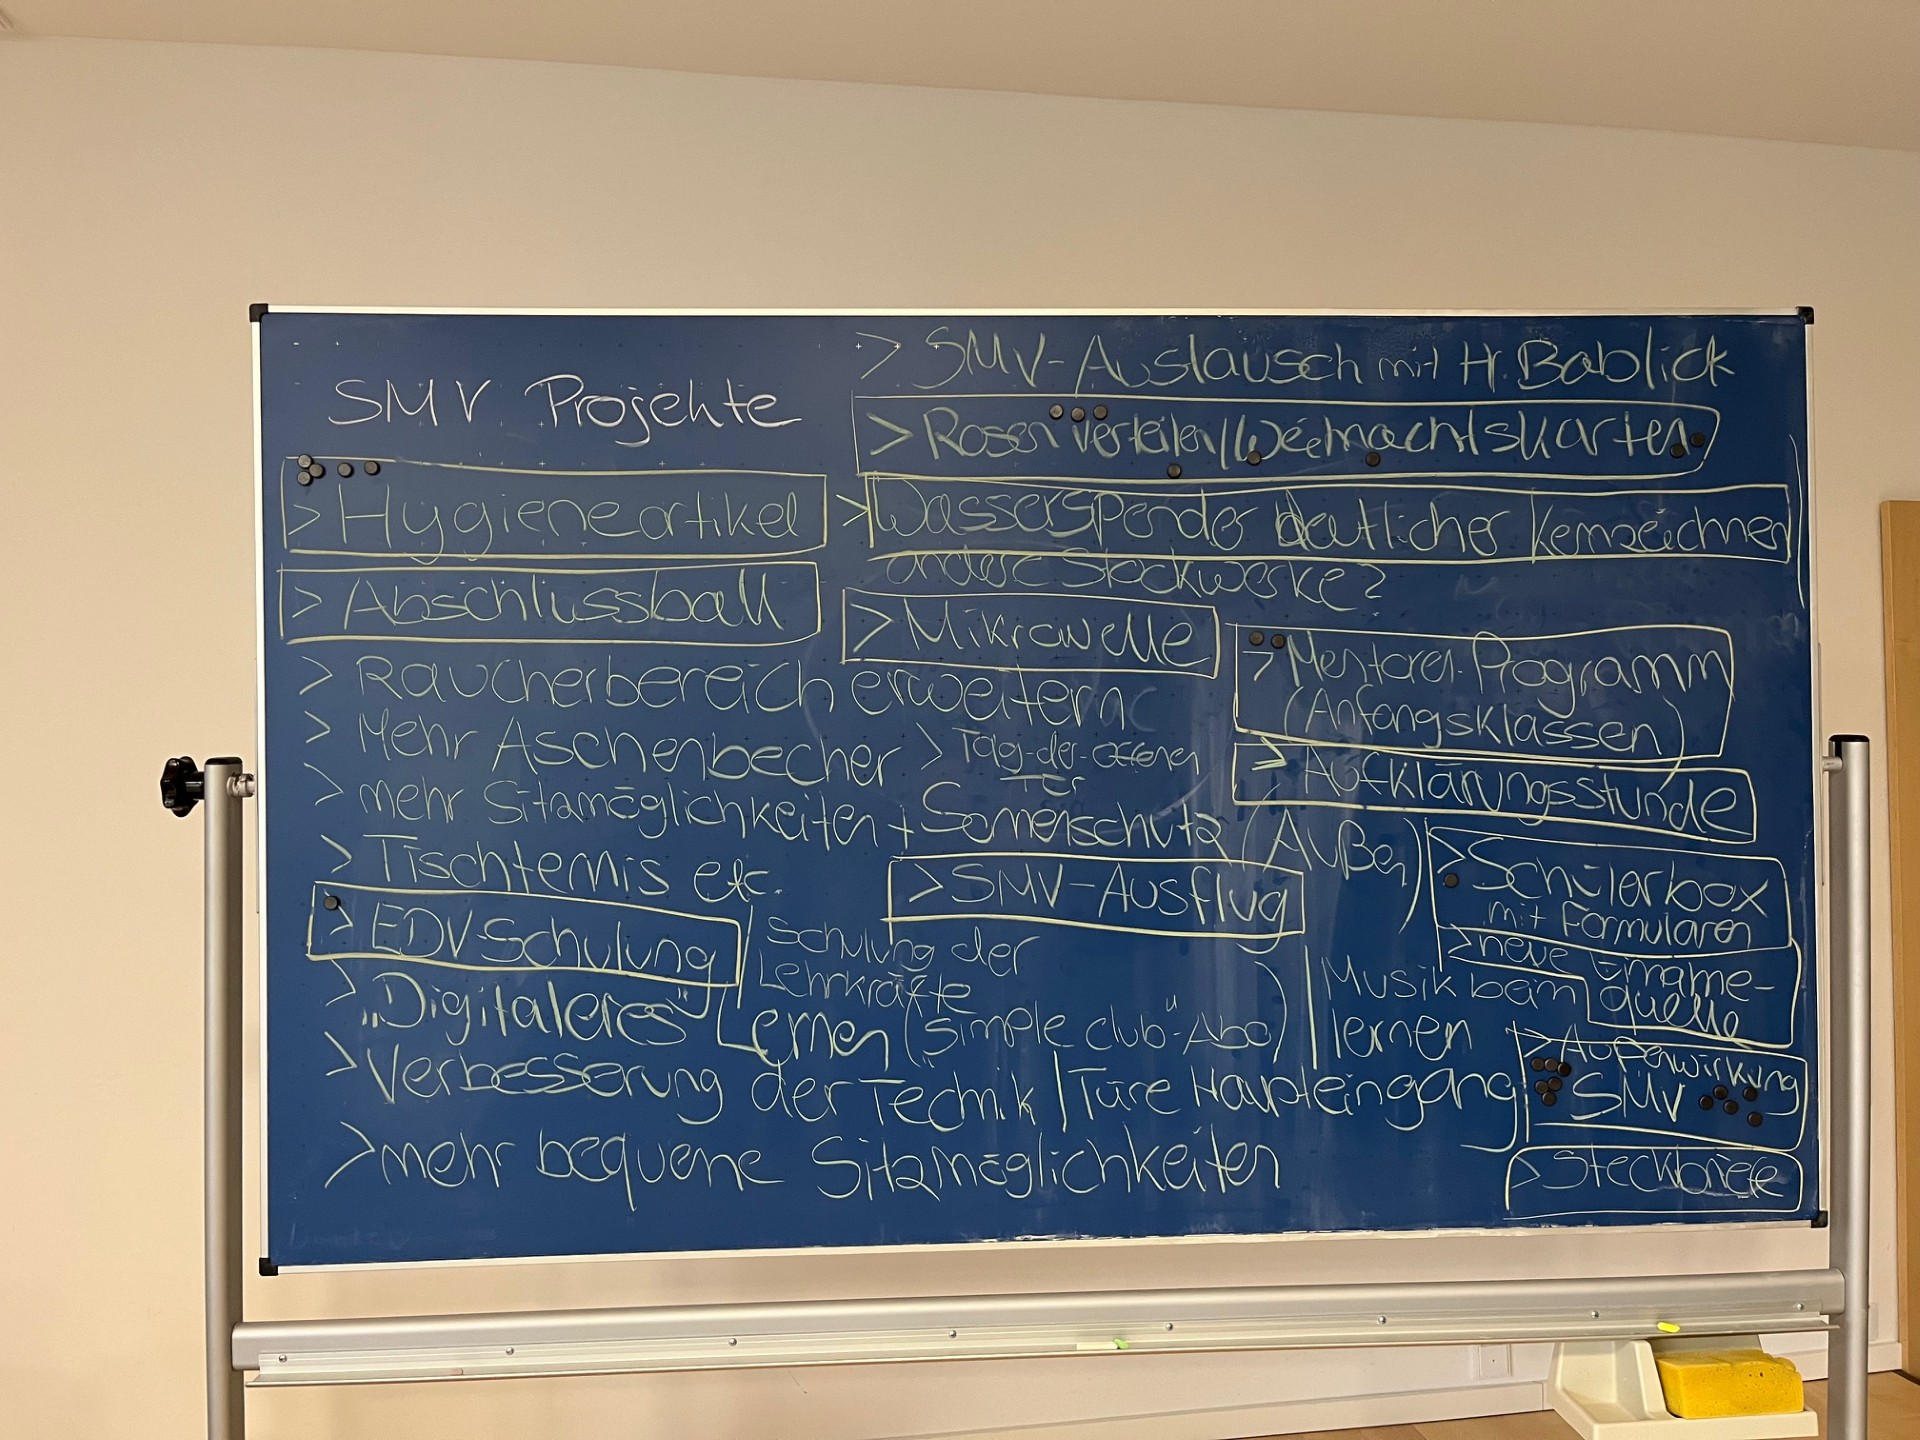 SMV Projekte
> Hygieneartikel
> Abschlussball
> Raucherbereich erweitern
> Mehr Aschenbecher
> mehr Sitzmöglichkeiten + Sonnenschutz (Außen)
> Tischtennis etc.
> EDV-Schulung
Schulung der
Lehrkräfte
> „Digitaleres" Lernen (simple club"-Abo)
Musik beim
lernen
> Verbesserung der Technik | Türe Haupteingang
> mehr bequeme Sitzmöglichkeiten
> SMV-Austausch mit H. Bablick
> Rosen verteilen/Weihnachtskarten
> Wasserspender deutlicher kennzeichnen
andere Stockwerke?
> Mikrowelle
> Tag-der-offenen
Tür
> SMV-Ausflug
> Mentoren-Programm
(Anfangsklassen)
> Aufklärungsstunde
> Schülerbox
mit Formularen
> neue Einnahme-
quelle
> Außenwirkung
SMV
> Steckbriefe